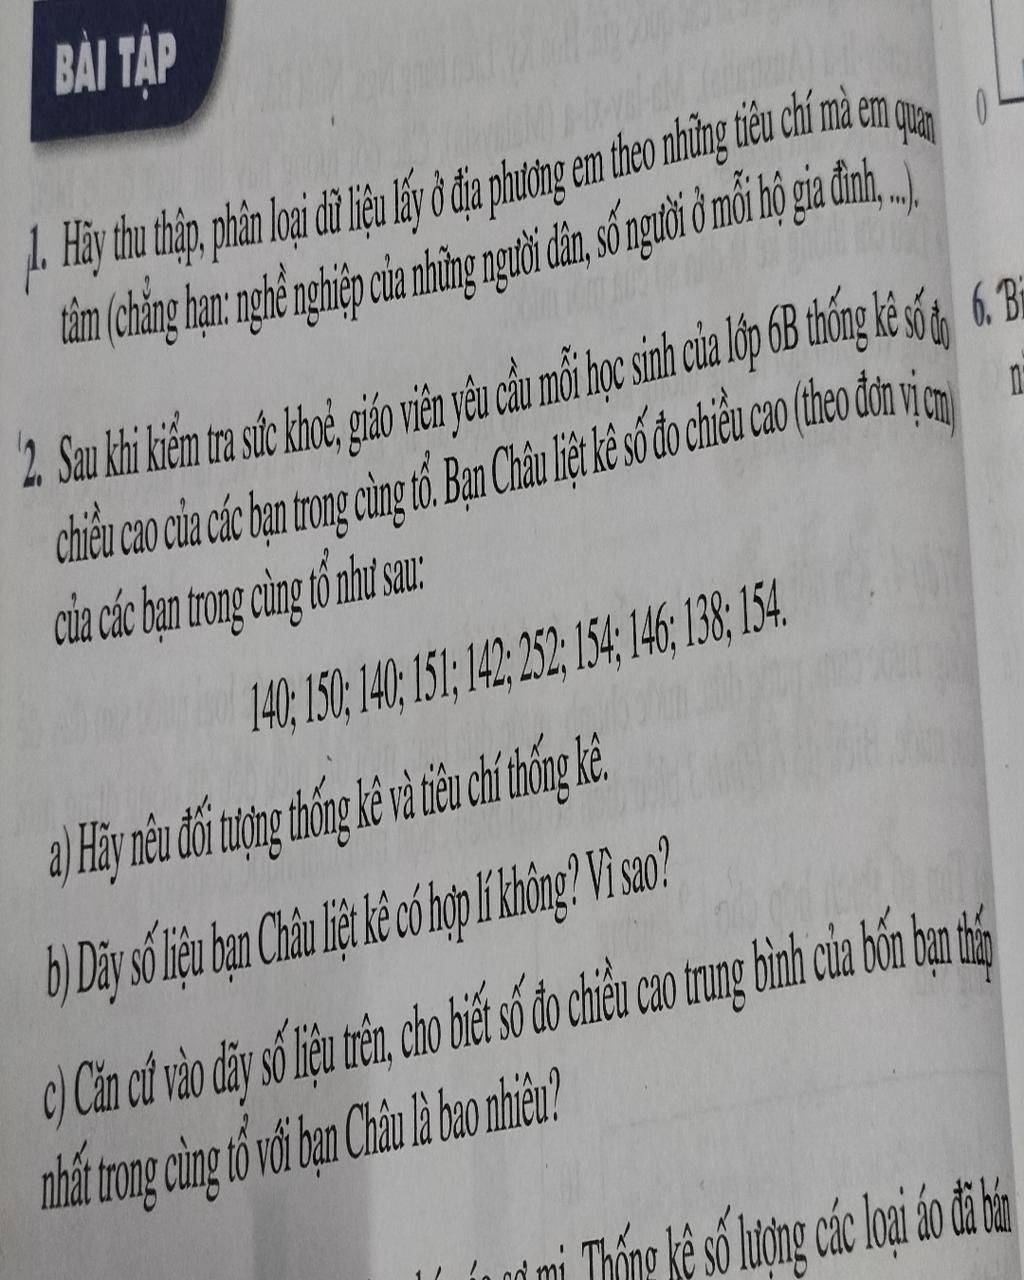 BÀI TẬP
1. Hãy thu thập, phân loại dữ liệu lấy ở địa phương em theo những tiêu chí mà em quan
tâm (chẳng hạn: nghề nghiệp của những người dân, số người ở mỗi hộ gia đình, ...).
2. Sau khi kiểm tra sức khoẻ, giáo viên yêu cầu mỗi học sinh của lớp 6B thống kê số đo
chiều cao của các bạn trong cùng tổ. Bạn Châu liệt kê số đo chiều cao (theo đơn vị cm)
của các bạn trong cùng tổ như sau:
140; 150; 140; 151; 142; 252; 154; 146; 138; 154.
a) Hãy nêu đối tượng thống kê và tiêu chí thống kê.
b) Dãy số liệu bạn Châu liệt kê có hợp lí không? Vì sao?
c) Căn cứ vào dãy số liệu trên, cho biết số đo chiều cao trung bình của bốn bạn thấp
nhất trong cùng tổ với bạn Châu là bao nhiêu?
sơ mi. Thống kê số lượng các loại áo đã bán
0
6.